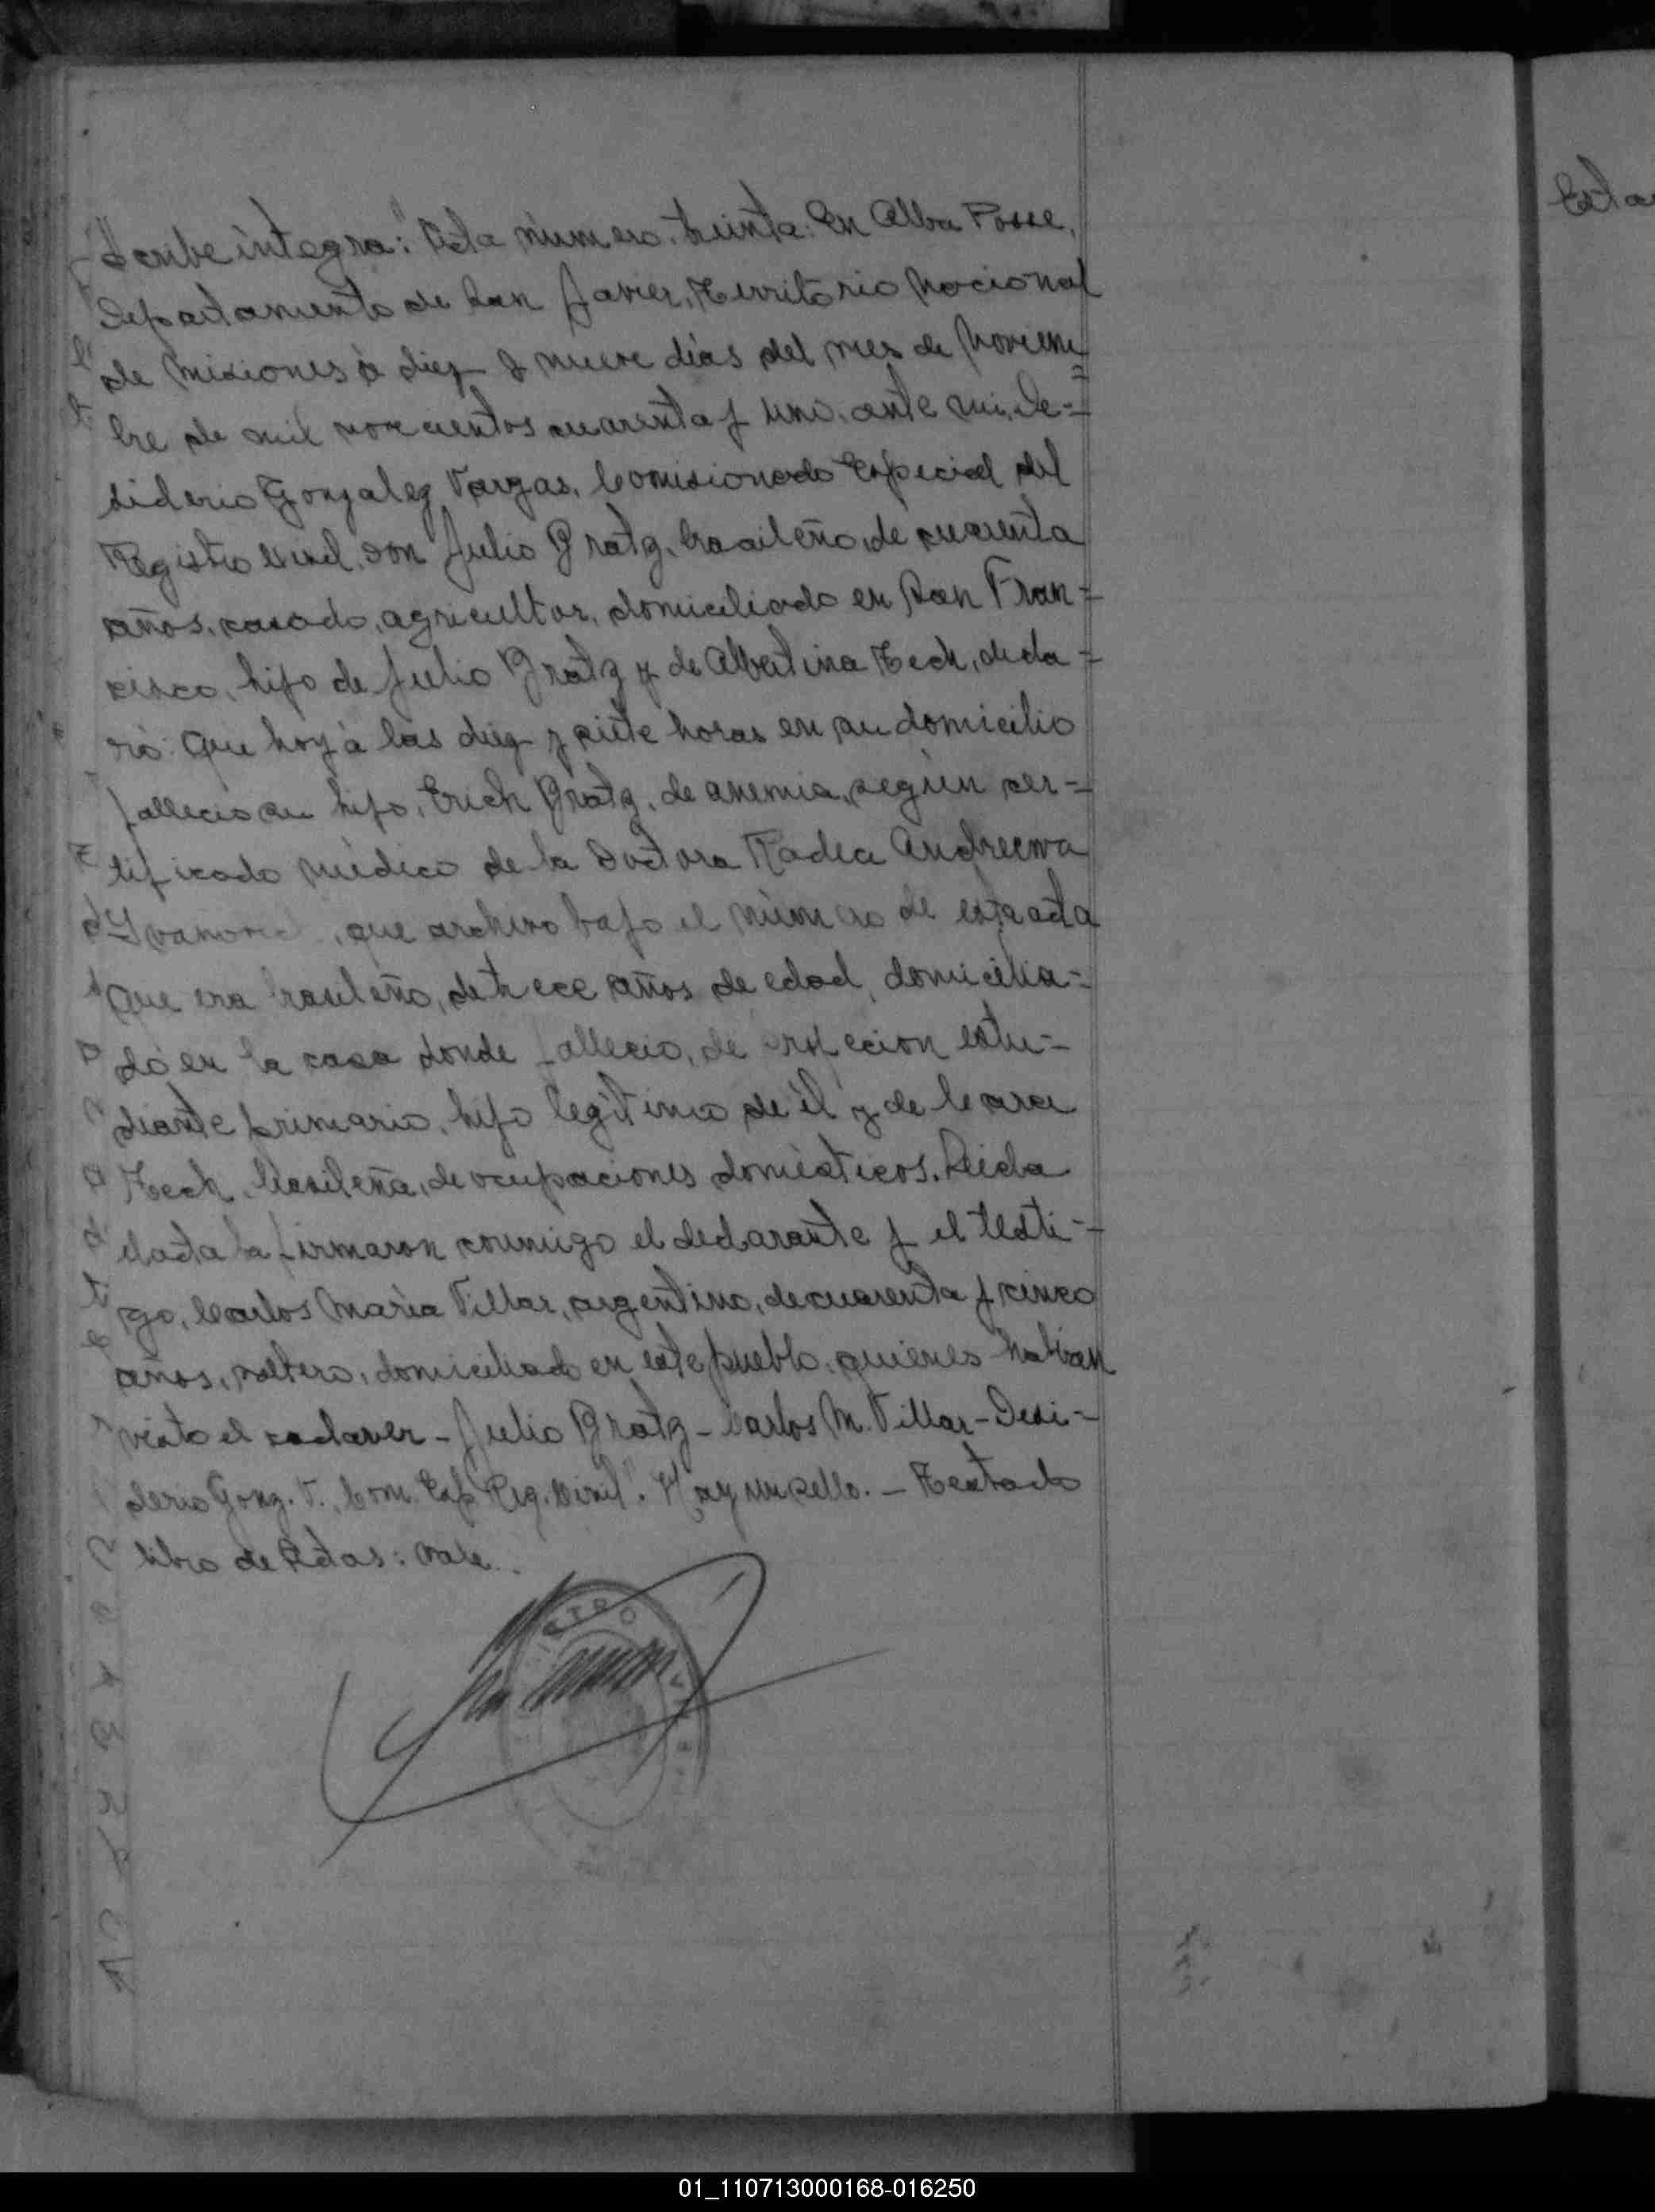 scribe íntegra: "Acta número treinta: En Alba Posse,
Departamento de San Javier, Territorio Nacional
de Misiones à diez y nueve días del mes de Noviem=
bre de mil novecientos cuarenta y uno, ante mi, De=
siderio Gonzalez Vargas, Comisionado Especial del
Registro Civil, don Julio Gratz, brasileño, de cuarenta
años, casado, agricultor, domiciliado en San Fran=
cisco, hijo de Julio Gratz y de Albertina Zech, decla=
ró: Que hoy à las diez y siete horas en su domicilio
falleció su hijo, Erich Gratz, de anemia, según cer=
tificado médico de la Doctora Nadia Andreewa
, que archivo bajo el número de esta acta
Que era brasileño, de trece años de edad, domicilia=
do en la casa donde falleció, de profecion estu=
diante primario, hijo legítimo de él y de Clara
Zech, brasileña, de ocupaciones domésticos. Leida
el acta la firmaron conmigo el declarante y el testi=
go, Carlos María Villar, argentino, de cuarenta y cinco
años, soltero, domiciliado en este pueblo, quienes habían
visto el cadaver - Julio Gratz - Carlos M. Villar - Desi=
derio Gonz. V., Com. Esp. Reg. Civil". Hay un sello. - Testado
libro de Actas: vale.
Esta
01_110713000168-016250